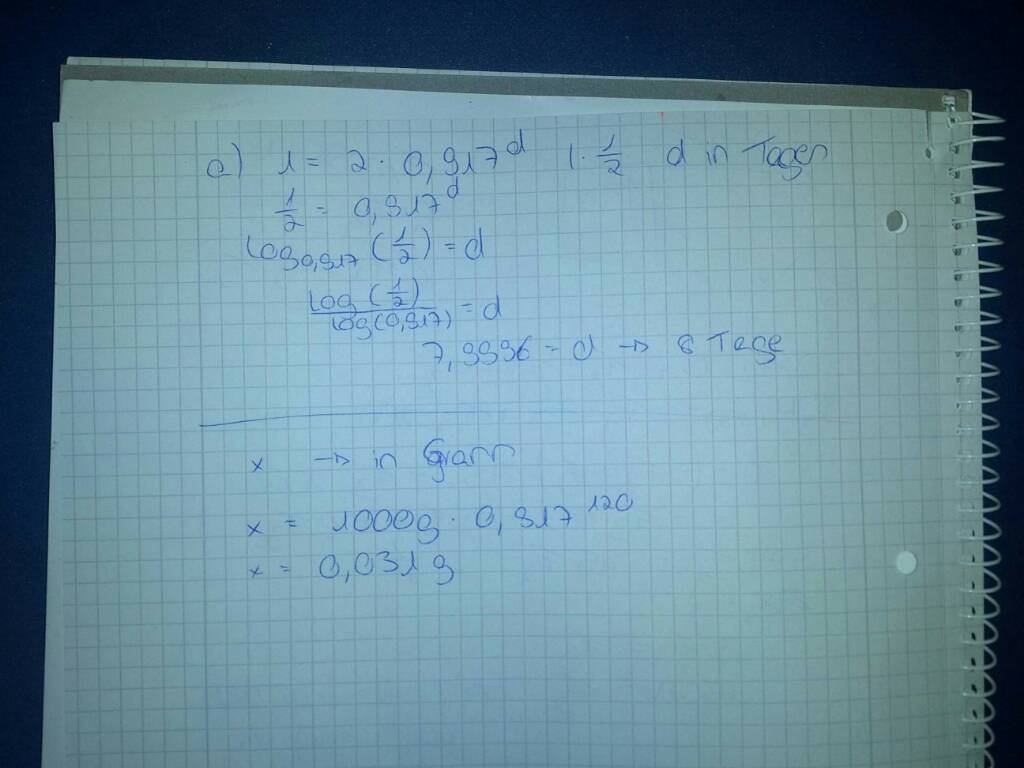 a) 1 = 2 · 0,917^d | · 1/2 d in Tagen
1/2 = 0,917^d
log_0,917 (1/2) = d
log(1/2) / log(0,917) = d
7,9996 = d → 8 Tage
x → in Gramm
x = 1000g · 0,917^120
x = 0,031g